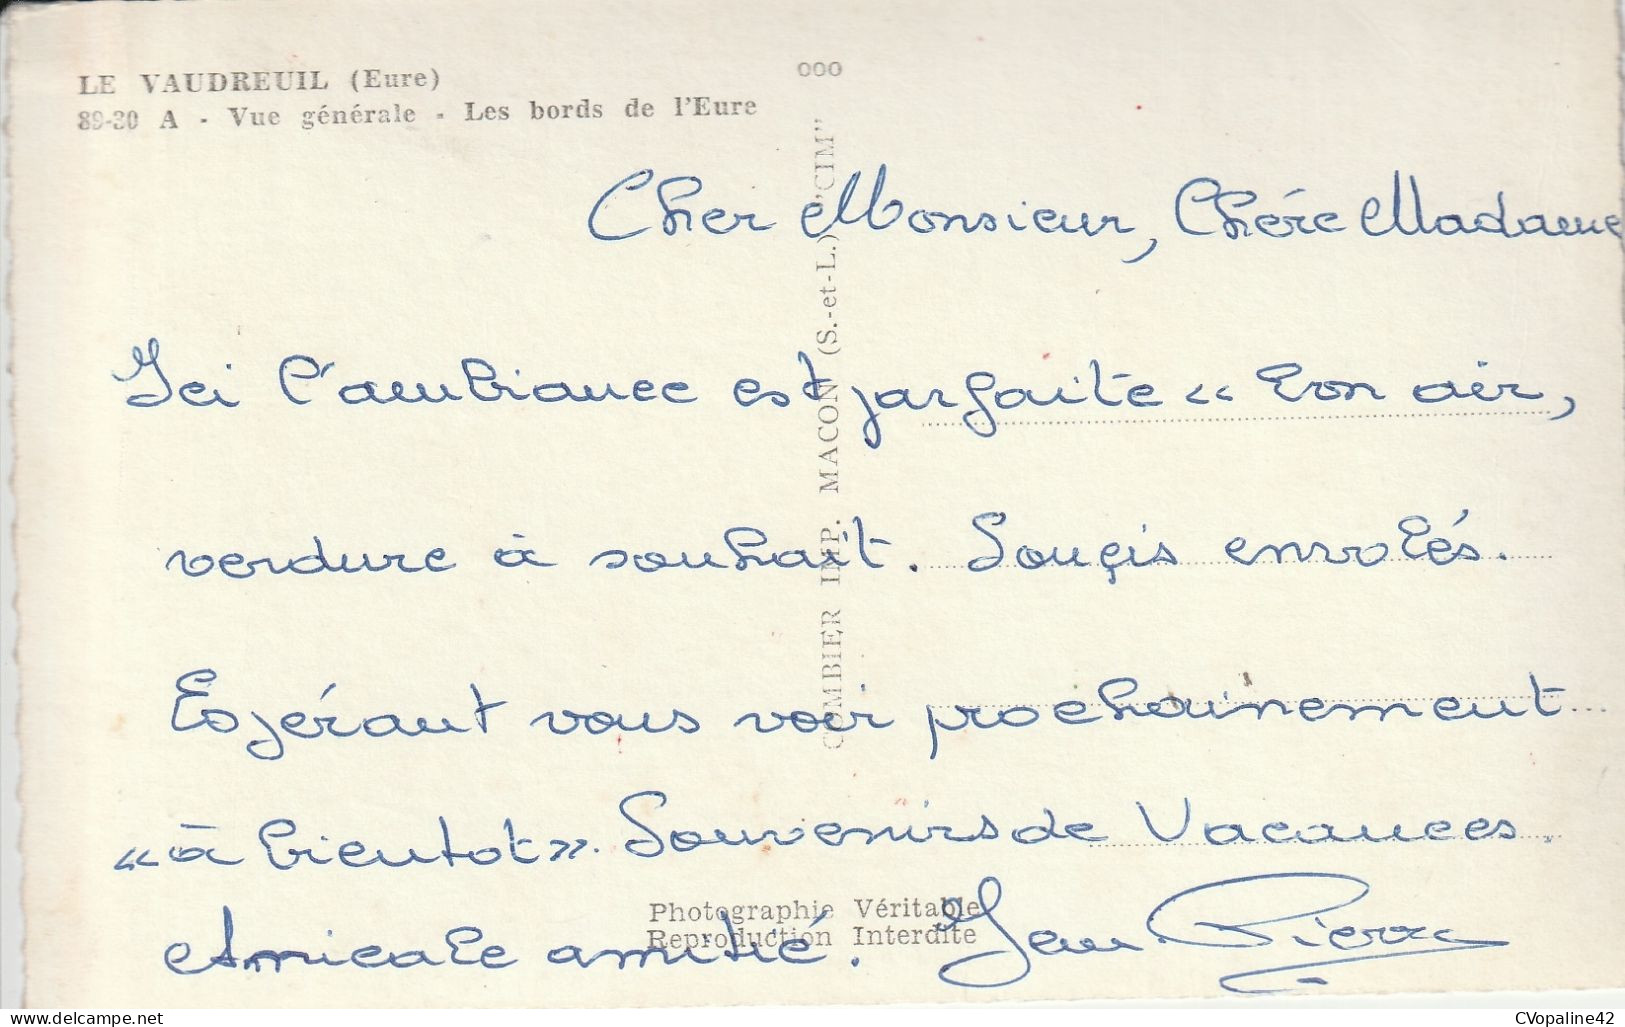 LE VAUDREUIL (Eure)
89-30 A - Vue générale - Les bords de l'Eure
000
Cher Monsieur, Chère Madame
Ici l'ambiance est parfaite « bon air,
verdure à souhait. Souçis envolés.
Espérant vous voir prochainement
« à bientot ». Souvenirs de Vacances
Amicale amitié. Jean Pierre
COMBIER IMP. MACON (S.-et-L.) "CIM"
Photographie Véritable
Reproduction Interdite
CVopaline42